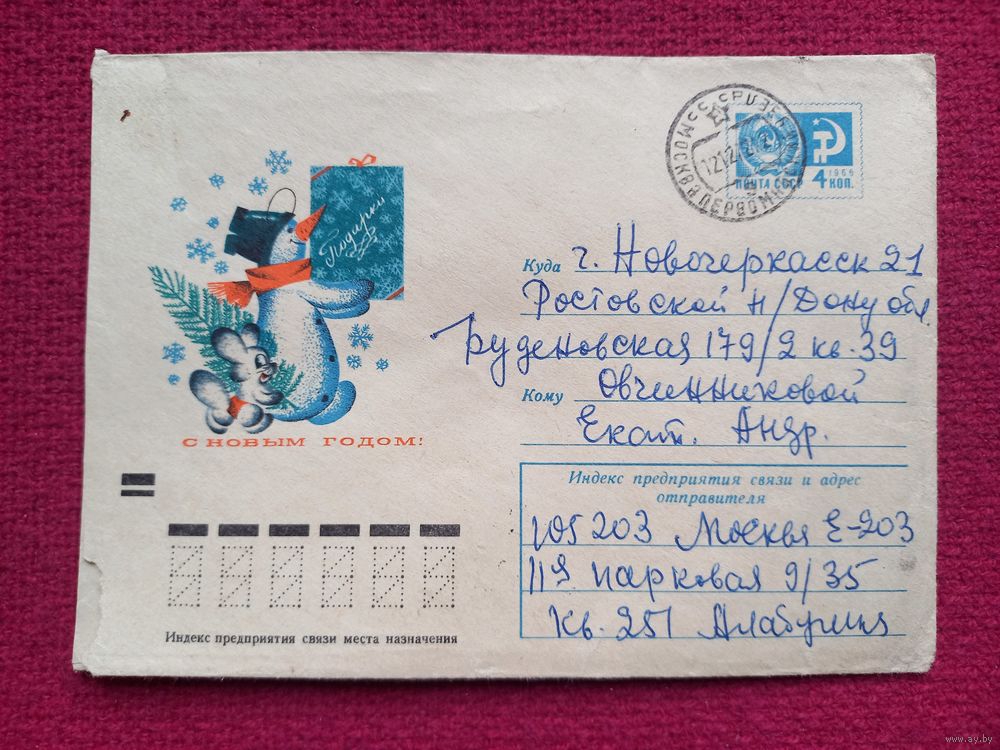 ПОЧТА СССР
1966
4 КОП.
Подарки
С НОВЫМ ГОДОМ!
Куда г. Новочеркасск 21
Ростовской н/Дону обл.
Буденовская 179/2 кв. 39
Кому Овчинниковой
Екат. Андр.
Индекс предприятия связи и адрес
отправителя
105203 Москва Е-203
11я парковая 9/35
Кв. 251
Индекс предприятия связи места назначения
www.ay.by